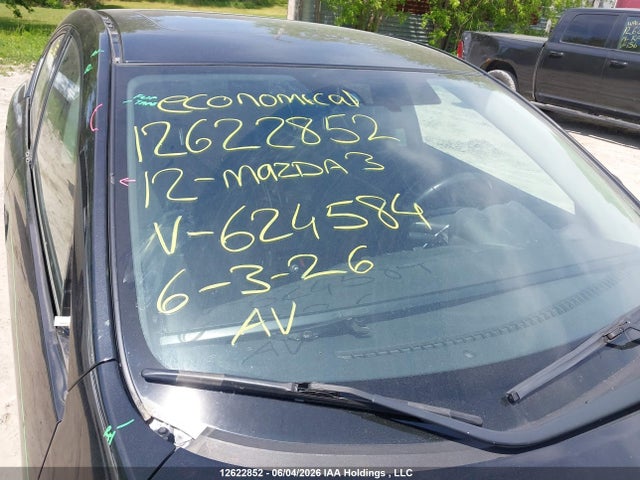 economical
12622852
12-MAZDA 3
V-624584
6-3-26
AV
12622852 - 06/04/2026 IAA Holdings , LLC